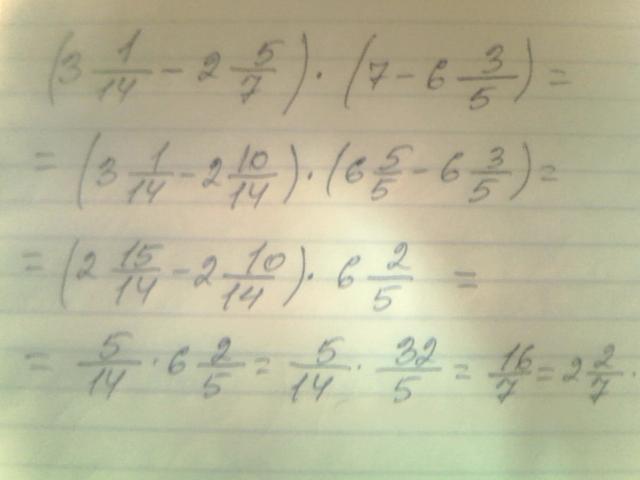 (3 1/14 - 2 5/7) · (7 - 6 3/5) =
= (3 1/14 - 2 10/14) · (6 5/5 - 6 3/5) =
= (2 15/14 - 2 10/14) · 6 2/5 =
= 5/14 · 6 2/5 = 5/14 · 32/5 = 16/7 = 2 2/7.